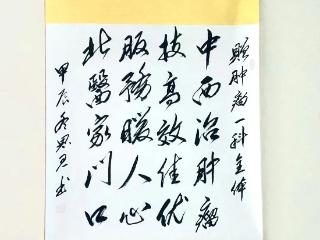 赠肿瘤一科全体
中西治肿瘤
技高效佳优
服务暖人心
北醫家门口
甲辰冬思君书